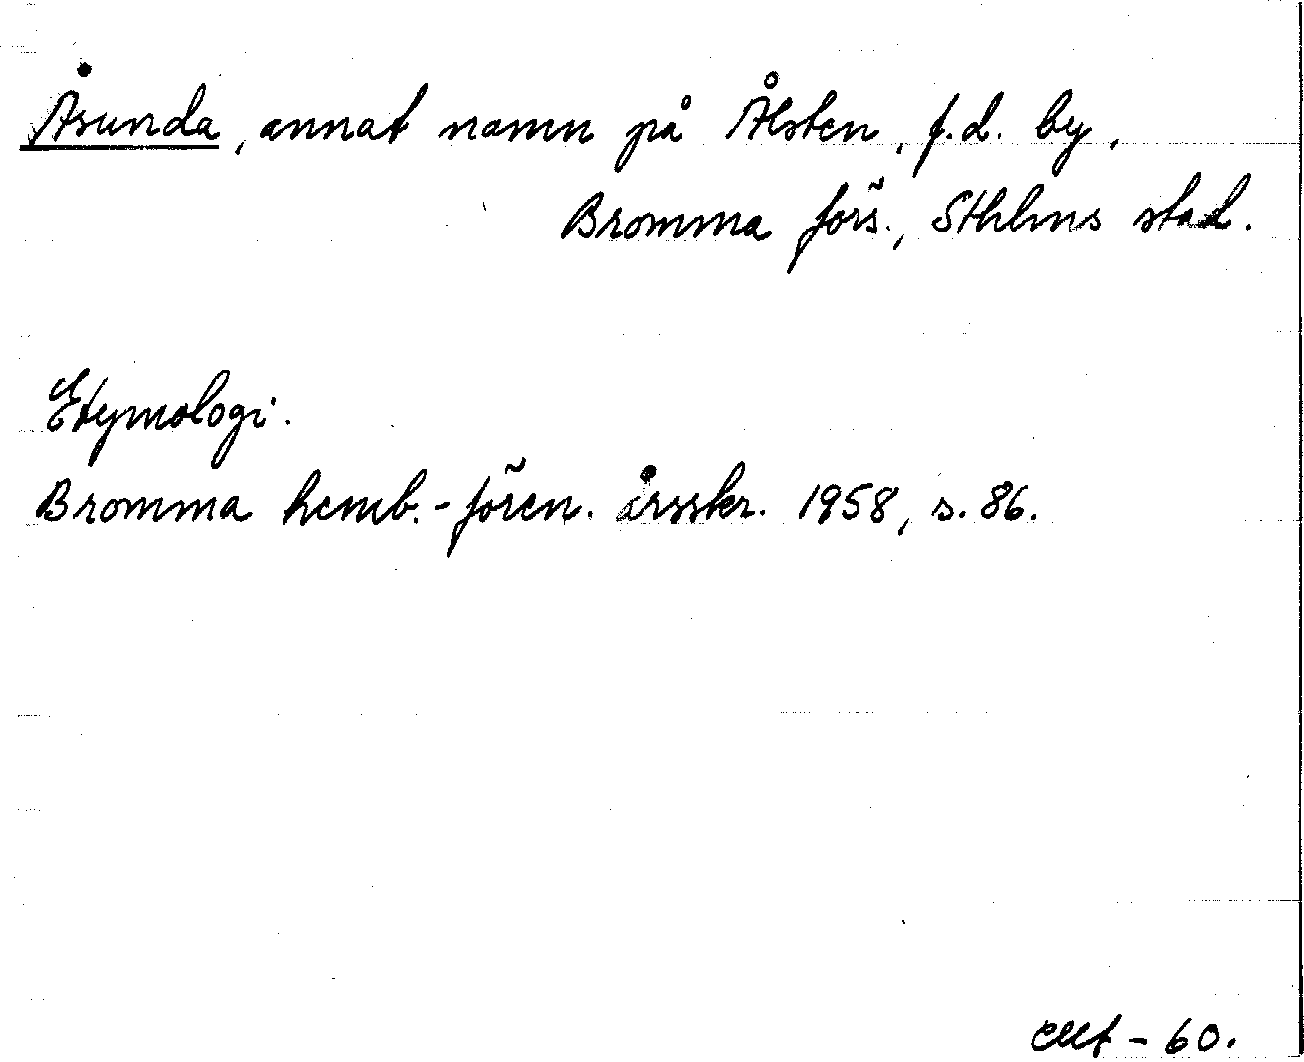 Åsunda, annat namn på Ålsten, f.d. by,
Bromma förs., Sthlms stad.
Etymologi.
Bromma hemb.-fören. årsskr. 1958, s. 86.
- 60.